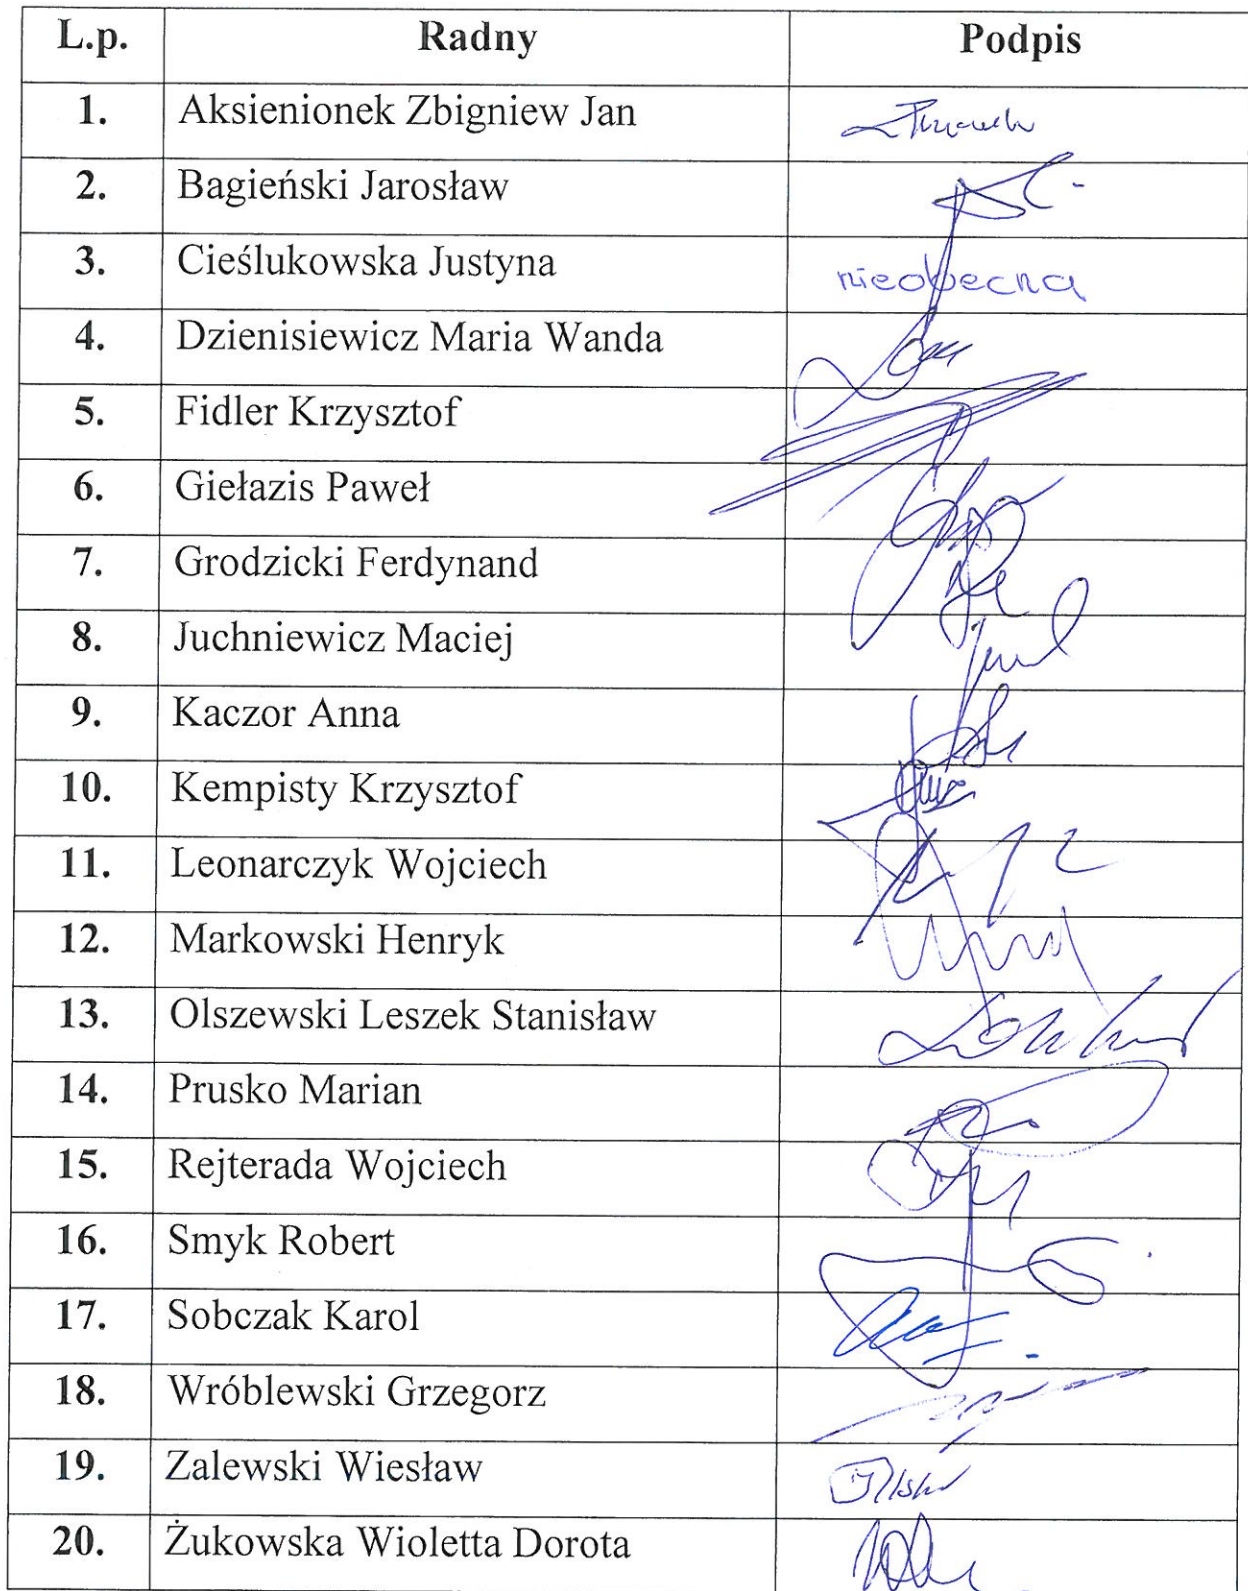 L.p. Radny Podpis
1. Aksienionek Zbigniew Jan
2. Bagieński Jarosław
3. Cieślukowska Justyna nieobecna
4. Dzienisiewicz Maria Wanda
5. Fidler Krzysztof
6. Giełazis Paweł
7. Grodzicki Ferdynand
8. Juchniewicz Maciej
9. Kaczor Anna
10. Kempisty Krzysztof
11. Leonarczyk Wojciech
12. Markowski Henryk
13. Olszewski Leszek Stanisław
14. Prusko Marian
15. Rejterada Wojciech
16. Smyk Robert
17. Sobczak Karol
18. Wróblewski Grzegorz
19. Zalewski Wiesław
20. Żukowska Wioletta Dorota